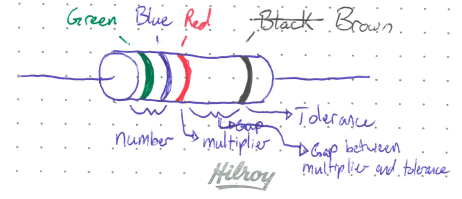 Green Blue Red Black Brown
Tolerance
Gap
number multiplier
Gap between
multiplier and tolerance
Hilroy